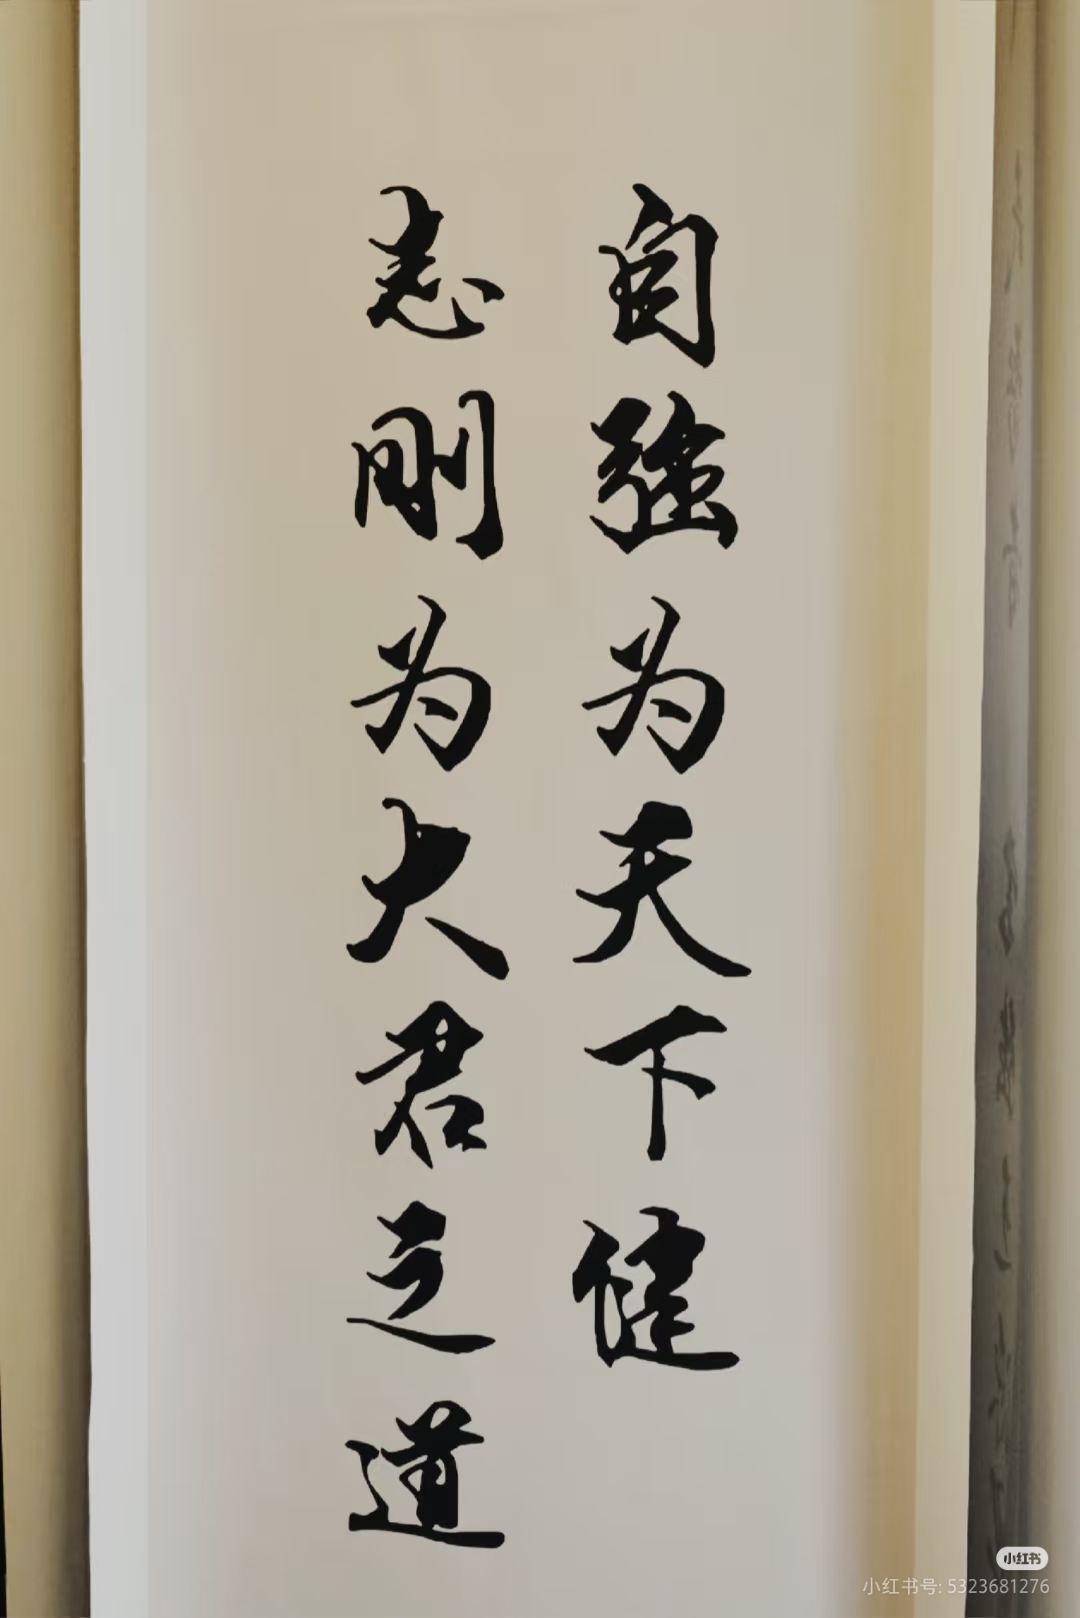 自强为天下健
志刚为大君之道
小红书
小红书号: 5323681276